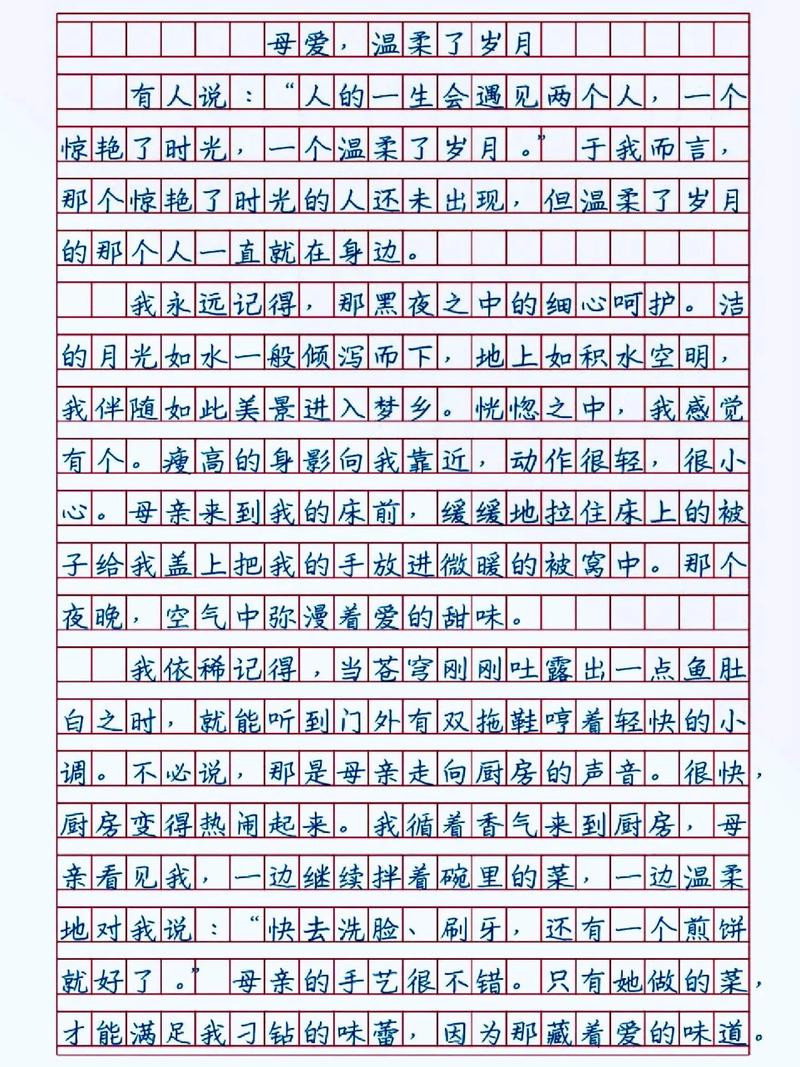 母爱，温柔了岁月
有人说：“人的一生会遇见两个人，一个
惊艳了时光，一个温柔了岁月。”于我而言，
那个惊艳了时光的人还未出现，但温柔了岁月
的那个人一直就在身边。
我永远记得，那黑夜之中的细心呵护。洁
的月光如水一般倾泻而下，地上如积水空明，
我伴随如此美景进入梦乡。恍惚之中，我感觉
有个。瘦高的身影向我靠近，动作很轻，很小
心。母亲来到我的床前，缓缓地拉住床上的被
子给我盖上把我的手放进微暖的被窝中。那个
夜晚，空气中弥漫着爱的甜味。
我依稀记得，当苍穹刚刚吐露出一点鱼肚
白之时，就能听到门外有双拖鞋哼着轻快的小
调。不必说，那是母亲走向厨房的声音。很快，
厨房变得热闹起来。我循着香气来到厨房，母
亲看见我，一边继续拌着碗里的菜，一边温柔
地对我说：“快去洗脸、刷牙，还有一个煎饼
就好了。”母亲的手艺很不错。只有她做的菜，
才能满足我刁钻的味蕾，因为那藏着爱的味道。